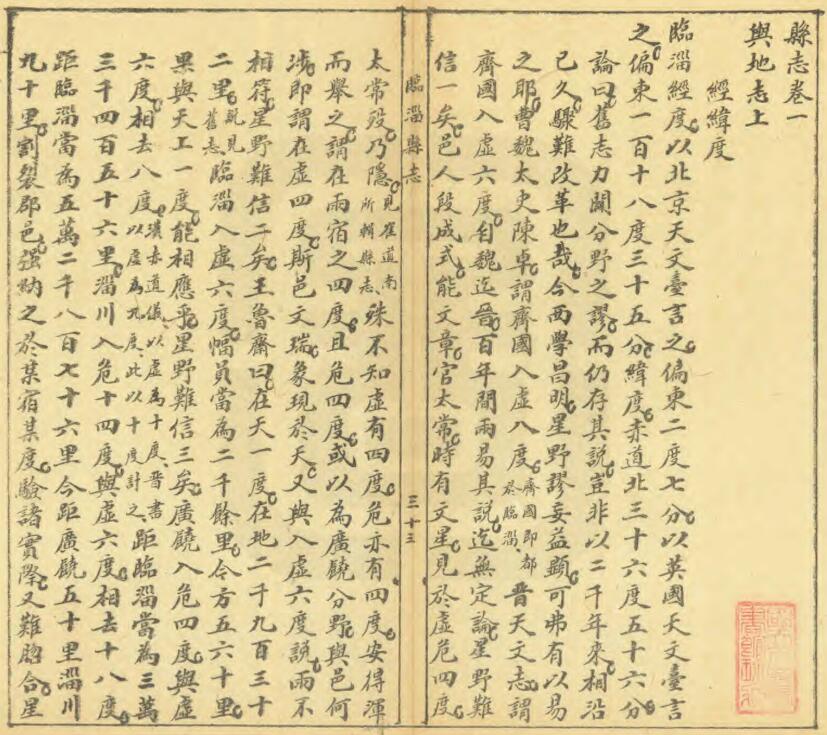 縣志卷一
輿地志上
經緯度
臨淄經度以北京天文臺言之偏東二度七分以英國天文臺言
之偏東一百十八度三十五分緯度赤道北三十六度五十六分
論曰舊志力闢分野之謬而仍存其說豈非以二千年來相沿
已久驟難改革也哉今西學昌明星野謬妄益顯可弗有以易
之耶曹魏太史陳卓謂齊國入虛八度齊國即都於臨淄晉天文志謂
齊國入虛六度自魏迄晉百年間兩易其說迄無定論星野難
信一矣邑人段成式能文章官太常時有文星見於虛危四度
臨淄縣志
三十三
太常歿乃隱見崔道南所輯縣志殊不知虛有四度危亦有四度安得渾
而舉之謂在兩宿之四度且危四度或以為廣饒分野與邑何
涉即謂在虛四度斯邑文瑞象現於天又與入虛六度說兩不
相符星野難信二矣王魯齋曰在天一度在地二千九百三十
二里說見舊志臨淄入虛六度幅員當為二千餘里今方五六十里
果與天工一度能相應乎星野難信三矣廣饒入危四度與虛
六度相去八度漢赤道儀以虛為十度晉書以虛為九度此以十度計之距臨淄當為三萬
三千四百五十六里淄川入危十四度與虛六度相去十八度
距臨淄當為五萬二千八百七十六里今距廣饒五十里淄川
九十里割裂郡邑強納之於某宿某度驗諸實際又難脗合星